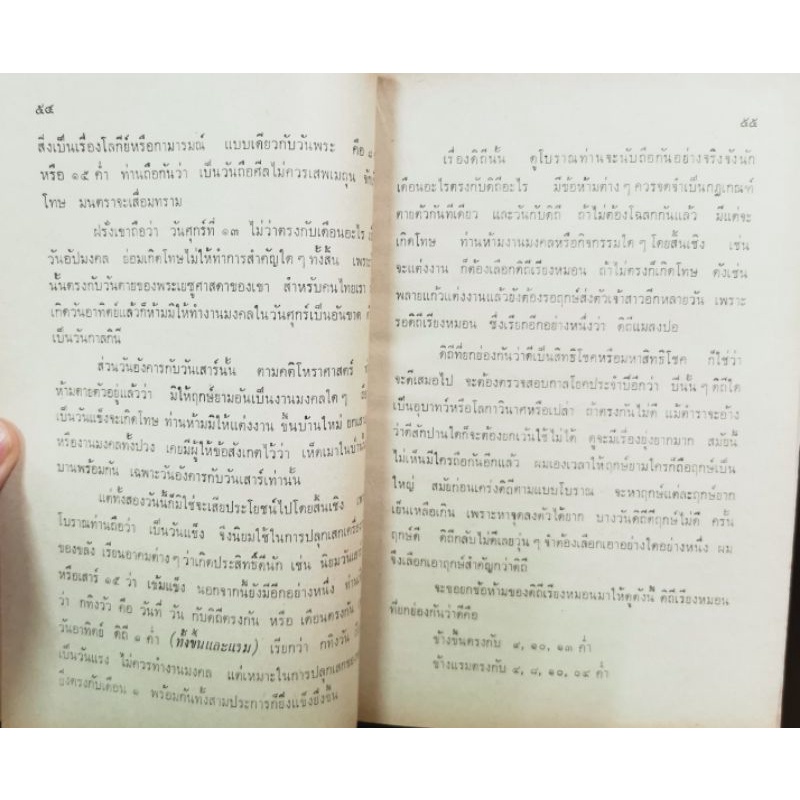 ๕๔
สิ่งเป็นเรื่องโลกีย์หรือกามารมณ์ แบบเดียวกับวันพระ คือ ๘
หรือ ๑๕ ค่ำ ท่านถือกันว่า เป็นวันถือศีลไม่ควรเสพเมถุน
โทษ มนตราจะเสื่อมทราม
ฝรั่งเขาถือว่า วันศุกร์ที่ ๑๓ ไม่ว่าตรงกับเดือนอะไร
วันอัปมงคล ย่อมเกิดโทษไม่ให้ทำการสำคัญใด ๆ ทั้งสิ้น เพราะ
นั้นตรงกับวันตายของพระเยซูศาสดาของเขา สำหรับคนไทยเรา
เกิดวันอาทิตย์แล้วก็ห้ามมิให้ทำงานมงคลในวันศุกร์เป็นอันขาด
เป็นวันกาลกินี
ส่วนวันอังคารกับวันเสาร์นั้น ตามคติโหราศาสตร์
ห้ามตายตัวอยู่แล้วว่า มิให้ฤกษ์ยามอันเป็นงานมงคลใด ๆ
เป็นวันแข็งจะเกิดโทษ ท่านห้ามมิให้แต่งงาน ขึ้นบ้านใหม่ ยกเสา
หรืองานมงคลทั้งปวง เคยมีผู้ให้ข้อสังเกตไว้ว่า เห็ดเมาในป่านั้น
บานพร้อมกัน เฉพาะวันอังคารกับวันเสาร์เท่านั้น
แต่ทั้งสองวันนั้นก็มิใช่จะเสียประโยชน์ไปโดยสิ้นเชิง
โบราณท่านถือว่า เป็นวันแข็ง จึงนิยมใช้ในการปลุกเสกเครื่อง
ของขลัง เรียนอาคมต่าง ๆ ว่าเกิดประสิทธิ์ดีนัก เช่น นิยมวันเสาร์
หรือเสาร์ ๑๕ ว่า เข้มแข็ง นอกจากนี้ยังมีอีกอย่างหนึ่ง ท่าน
ว่า กทิงวัว คือ วันที่ วัน กับดิถีตรงกัน หรือ เดือนตรงกัน
วันอาทิตย์ ดิถี ๑ ค่ำ (ทั้งขึ้นและแรม) เรียกว่า กทิงวัน
เป็นวันแรง ไม่ควรทำงานมงคล แต่เหมาะในการปลุกเสกของ
ยิ่งตรงกับเดือน ๑ พร้อมกันทั้งสามประการก็ยิ่งแข็งยิ่งขึ้น
๕๕
เรื่องดิถีนั้น ดูโบราณท่านจะนับถือกันอย่างจริงจังนัก
เดือนอะไรตรงกับดิถีอะไร มีข้อห้ามต่าง ๆ ควรจดจำเป็นกฎเกณฑ์
ตายตัวกันทีเดียว และวันกับดิถี ถ้าไม่ต้องโฉลกกันแล้ว มีแต่จะ
เกิดโทษ ท่านห้ามงานมงคลหรือกิจกรรมใด ๆ โดยสิ้นเชิง เช่น
จะแต่งงาน ก็ต้องเลือกดิถีเรียงหมอน ถ้าไม่ตรงก็เกิดโทษ ดังเช่น
พลายแก้วแต่งงานแล้วยังต้องรอฤกษ์ส่งตัวเจ้าสาวอีกหลายวัน เพราะ
รอดิถีเรียงหมอน ซึ่งเรียกอีกอย่างหนึ่งว่า ดิถีแมลงปอ
ดิถีที่ยกย่องกันว่าดีเป็นสิทธิโชคหรือมหาสิทธิโชค ก็ใช่ว่า
จะดีเสมอไป จะต้องตรวจสอบกาลโยคประจำปีอีกว่า ปีนั้น ๆ ดิถีใด
เป็นอุบาทว์หรือโลกาวินาศหรือเปล่า ถ้าตรงกันไม่ดี แม้ตำราจะอ้าง
ว่าดีสักปานใดก็จะต้องยกเว้นใช้ไม่ได้ ดูจะมีเรื่องยุ่งยากมาก สมัยนี้
ไม่เห็นมีใครถือกันอีกแล้ว ผมเองเวลาให้ฤกษ์ยามใครก็ถือฤกษ์เป็น
ใหญ่ สมัยก่อนเคร่งดิถีตามแบบโบราณ จะหาฤกษ์แต่ละฤกษ์ยาก
เย็นเหลือเกิน เพราะหาจุดลงตัวได้ยาก บางวันดิถีดีฤกษ์ไม่ดี ครั้น
ฤกษ์ดี ดิถีกลับไม่ดีเลยวุ่น ๆ จำต้องเลือกเอาอย่างใดอย่างหนึ่ง ผม
จึงเลือกเอาฤกษ์สำคัญกว่าดิถี
จะขอยกข้อห้ามของดิถีเรียงหมอนมาให้ดูดังนี้ ดิถีเรียงหมอน
ที่ยกย่องกันว่าดีคือ
ข้างขึ้นตรงกับ ๗, ๑๐, ๑๓ ค่ำ
ข้างแรมตรงกับ ๔, ๘, ๑๐, ๑๔ ค่ำ